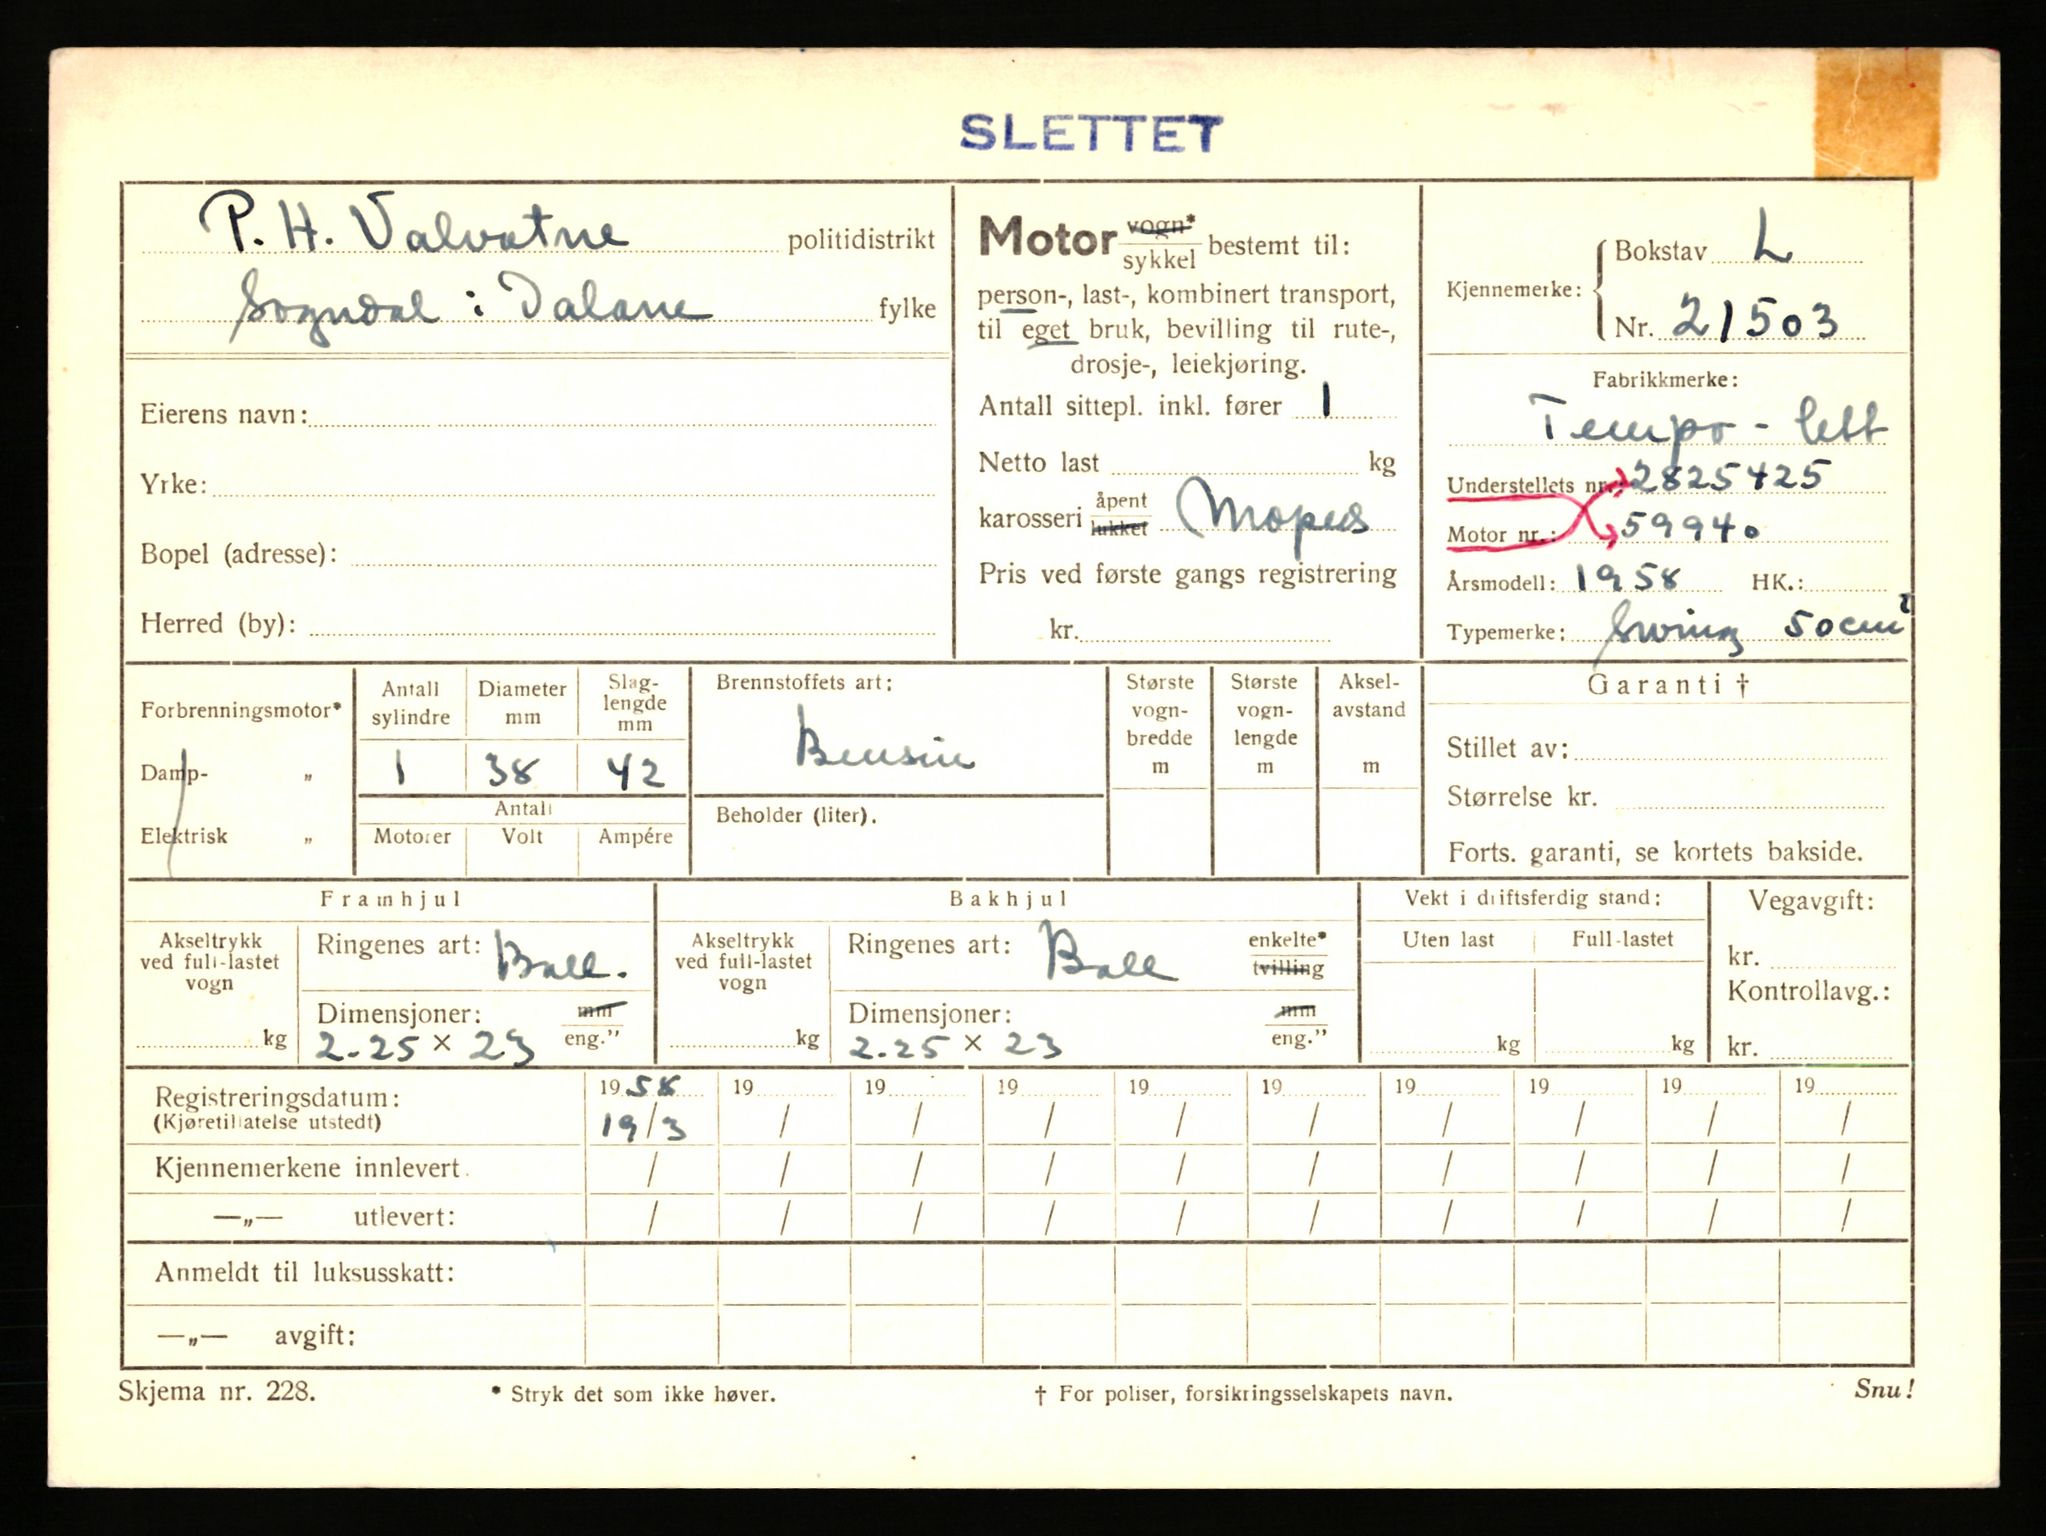 SLETTET
P. H. Valvatne politidistrikt
Sogndal i Dalane fylke
Eierens navn:
Yrke:
Bopel (adresse):
Herred (by):
Motor vogn* sykkel bestemt til:
person-, last-, kombinert transport,
til eget bruk, bevilling til rute-,
drosje-, leiekjøring.
Antall sittepl. inkl. fører 1
Netto last kg
karosseri åpent lukket Moped
Pris ved første gangs registrering
kr.
Kjennemerke: Bokstav L
Nr. 21503
Fabrikkmerke:
Tempo - lett
Understellets nr.: 2825425
Motor nr.: 59940
Årsmodell: 1958 HK.:
Typemerke: Swing 50cm²
Forbrenningsmotor*
Damp- „
Elektrisk „
Antall sylindre
Diameter mm
Slaglengde mm
1 38 42
Antall
Motorer Volt Ampére
Brennstoffets art:
Bensin
Beholder (liter).
Største vogn-bredde m
Største vogn-lengde m
Aksel-avstand m
Garanti †
Stillet av:
Størrelse kr.
Forts. garanti, se kortets bakside.
Framhjul
Akseltrykk ved full-lastet vogn
kg
Ringenes art: Ball.
Dimensjoner: mm eng.”
2.25 × 23
Bakhjul
Akseltrykk ved full-lastet vogn
kg
Ringenes art: Ball enkelte* tvilling
Dimensjoner: mm eng.”
2.25 × 23
Vekt i driftsferdig stand:
Uten last Full-lastet
kg kg
Vegavgift:
kr.
Kontrollavg.:
kr.
Registreringsdatum: 1958 19 19 19 19 19 19 19 19 19
(Kjøretillatelse utstedt) 19/3 / / / / / / / / /
Kjennemerkene innlevert. / / / / / / / / / /
—„— utlevert: / / / / / / / / / /
Anmeldt til luksusskatt:
—„— avgift:
Skjema nr. 228. * Stryk det som ikke høver. † For poliser, forsikringsselskapets navn. Snu!